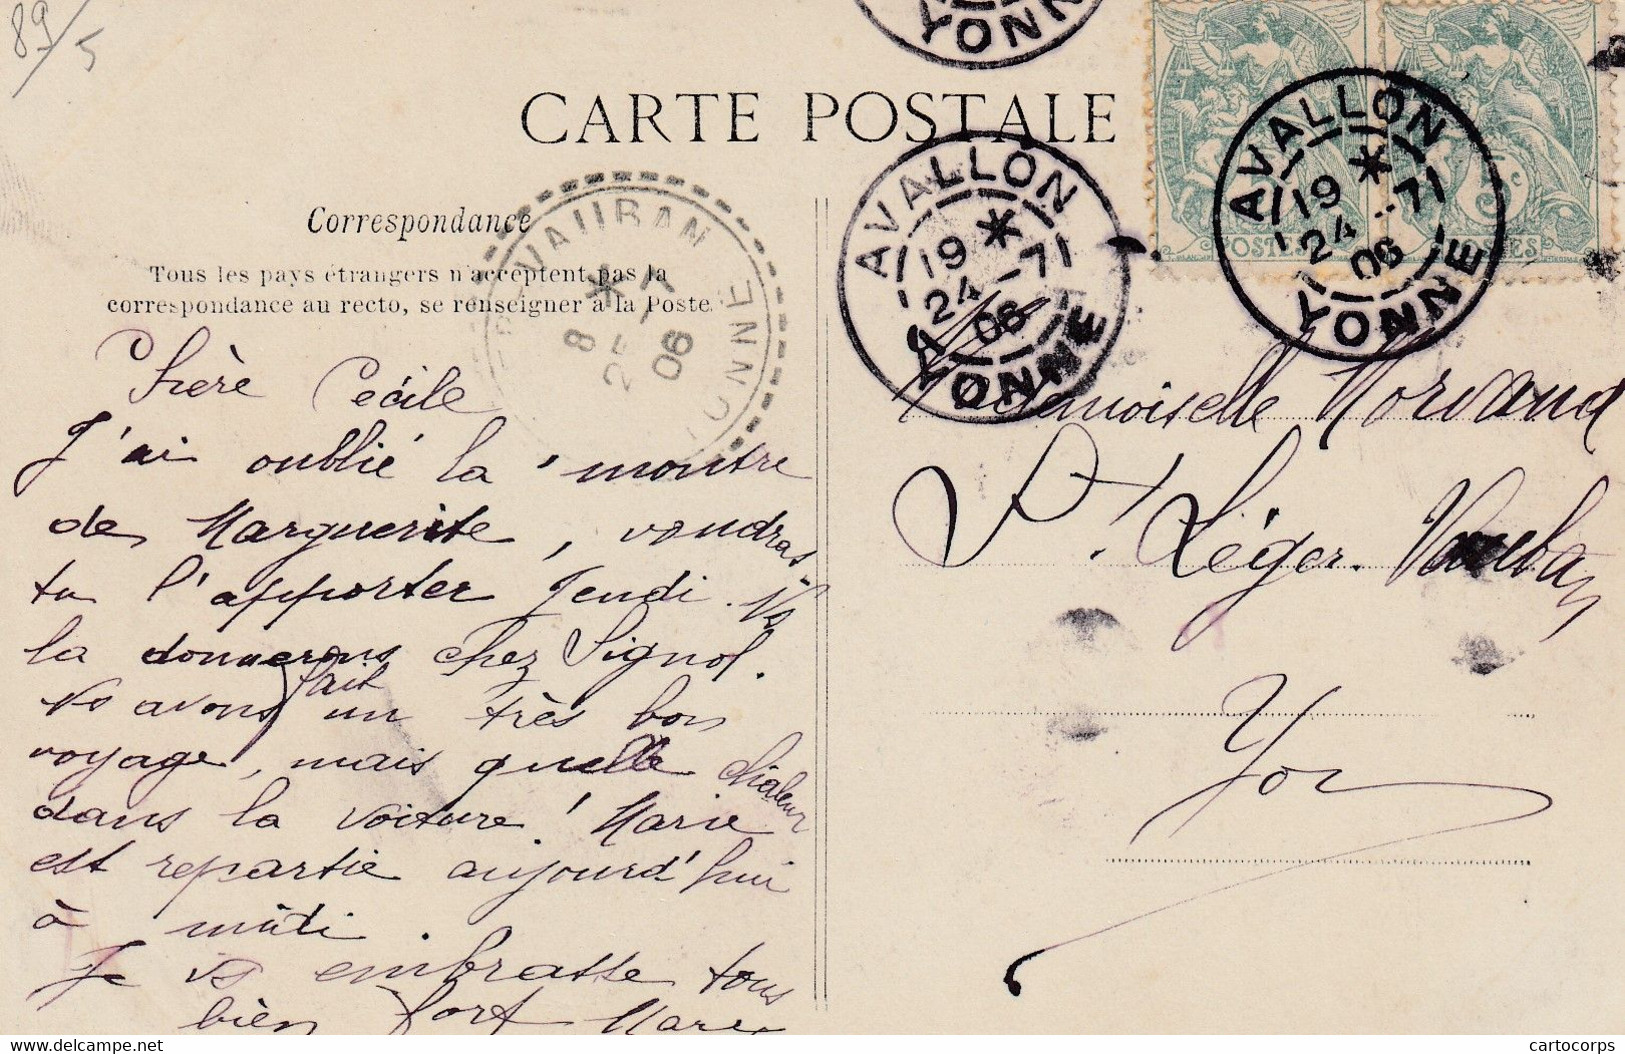 89/5
CARTE POSTALE
Correspondance
Tous les pays étrangers n'acceptent pas la
correspondance au recto, se renseigner à la Poste.
Chère Cécile
J'ai oublié la montre
de Marguerite, voudras-
tu l'apporter Jeudi. Ns
la donnerons chez Signol.
Ns avons fait un très bon
voyage, mais quelle chaleur
dans la voiture! Marie
est repartie aujourd'hui
à midi.
Je vs embrasse tous
bien fort Marie
Mademoiselle Morvand
St. Léger. Vauban
Yon
AVALLON
19 *
24 -71
06
YONNE
AVALLON
19 *
24 -71
06
YONNE
YONNE
VAUBAN
8 *
25 -7
06
YONNE
POSTES
5c
POSTES
cartocorps